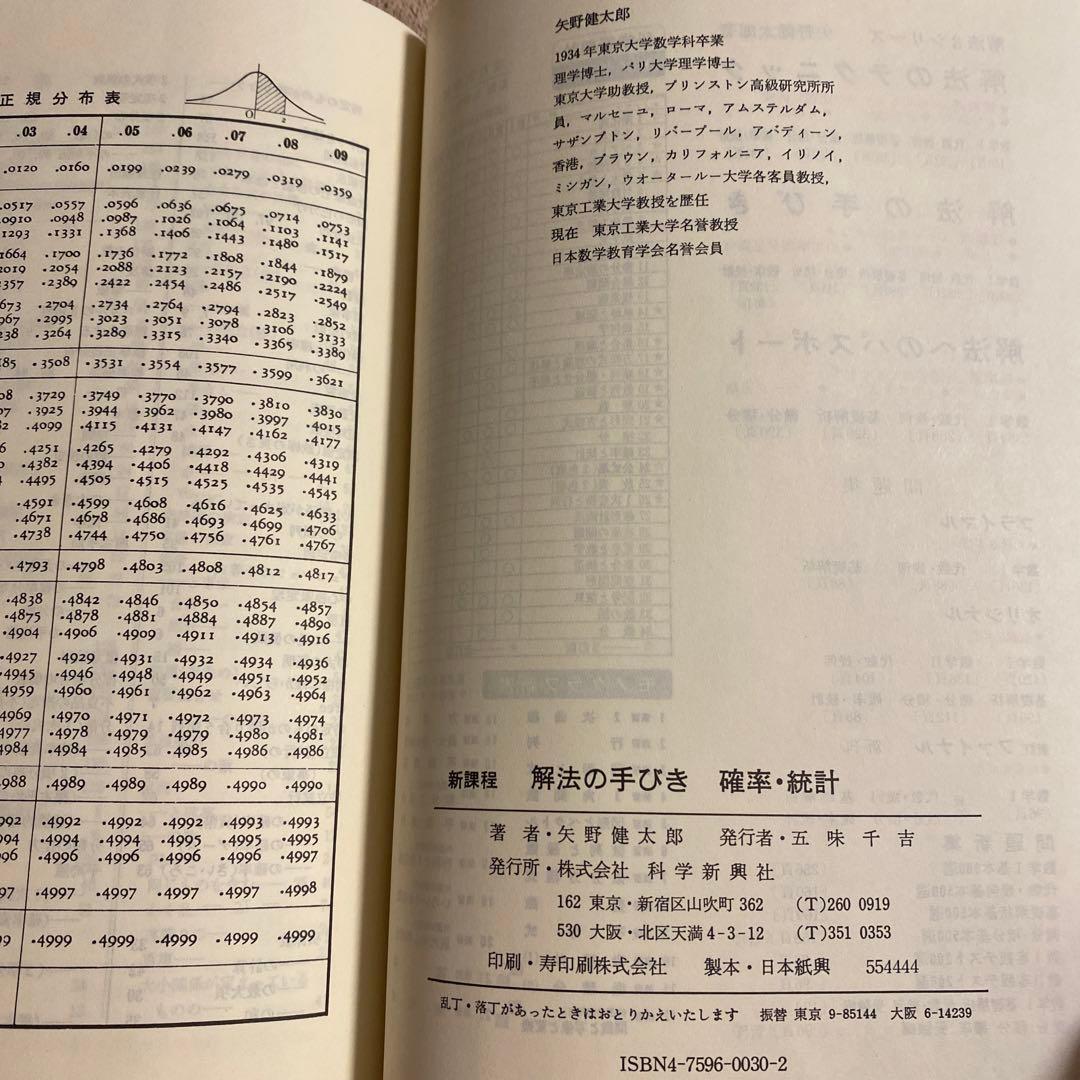 正規分布表
O z
.03 .04 .05 .06 .07 .08 .09
.0120 .0160 .0199 .0239 .0279 .0319 .0359
.0517 .0557 .0596 .0636 .0675 .0714 .0753
.0910 .0948 .0987 .1026 .1064 .1103 .1141
.1293 .1331 .1368 .1406 .1443 .1480 .1517
.1664 .1700 .1736 .1772 .1808 .1844 .1879
.2019 .2054 .2088 .2123 .2157 .2190 .2224
.2357 .2389 .2422 .2454 .2486 .2517 .2549
.2704 .2734 .2764 .2794 .2823 .2852
.2995 .3023 .3051 .3078 .3106 .3133
.3264 .3289 .3315 .3340 .3365 .3389
.3508 .3531 .3554 .3577 .3599 .3621
.3729 .3749 .3770 .3790 .3810 .3830
.3925 .3944 .3962 .3980 .3997 .4015
.4099 .4115 .4131 .4147 .4162 .4177
.4251 .4265 .4279 .4292 .4306 .4319
.4382 .4394 .4406 .4418 .4429 .4441
.4495 .4505 .4515 .4525 .4535 .4545
.4591 .4599 .4608 .4616 .4625 .4633
.4671 .4678 .4686 .4693 .4699 .4706
.4738 .4744 .4750 .4756 .4761 .4767
.4793 .4798 .4803 .4808 .4812 .4817
.4838 .4842 .4846 .4850 .4854 .4857
.4875 .4878 .4881 .4884 .4887 .4890
.4904 .4906 .4909 .4911 .4913 .4916
.4927 .4929 .4931 .4932 .4934 .4936
.4945 .4946 .4948 .4949 .4951 .4952
.4959 .4960 .4961 .4962 .4963 .4964
.4969 .4970 .4971 .4972 .4973 .4974
.4977 .4978 .4979 .4979 .4980 .4981
.4984 .4984 .4985 .4985 .4986 .4986
.4988 .4989 .4989 .4989 .4990 .4990
.4992 .4992 .4992 .4992 .4993 .4993
.4994 .4994 .4994 .4995 .4995 .4995
.4996 .4996 .4996 .4996 .4996 .4997
.4997 .4997 .4997 .4997 .4997 .4998
.4999 .4999 .4999 .4999 .4999
矢野健太郎
1934年東京大学数学科卒業
理学博士，パリ大学理学博士
東京大学助教授，プリンストン高級研究所所
員，マルセーユ，ローマ，アムステルダム，
サザンプトン，リバープール，アバディーン，
香港，ブラウン，カリフォルニア，イリノイ，
ミシガン，ウオータールー大学各客員教授，
東京工業大学教授を歴任
現在 東京工業大学名誉教授
日本数学教育学会名誉会員
新課程 解法の手びき 確率・統計
著者・矢野健太郎 発行者・五味千吉
発行所・株式会社 科学新興社
162 東京・新宿区山吹町362 (T)260 0919
530 大阪・北区天満4-3-12 (T)351 0353
印刷・寿印刷株式会社 製本・日本紙興 554444
乱丁・落丁があったときはおとりかえいたします 振替 東京 9-85144 大阪 6-14239
ISBN4-7596-0030-2